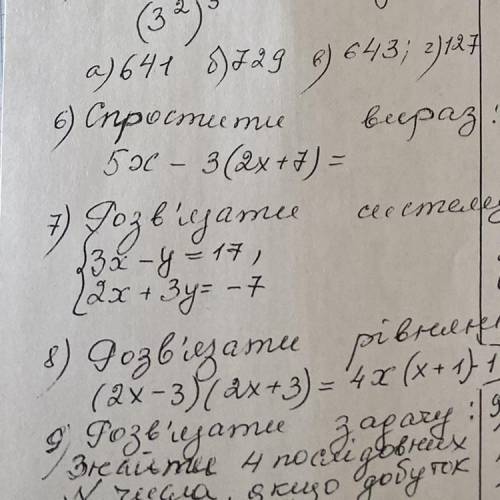 (3²)³
а) 641 б) 729 в) 643; г) 127
6) Спростити вираз:
5x - 3(2x+7) =
7) Розв'язати систему
{3x - y = 17,
{2x + 3y = -7
8) Розв'язати рівнян
(2x-3)(2x+3) = 4x(x+1)-1
9) Розв'язати задачу:
Знайти 4 послідовних
N числа, якщо добуток